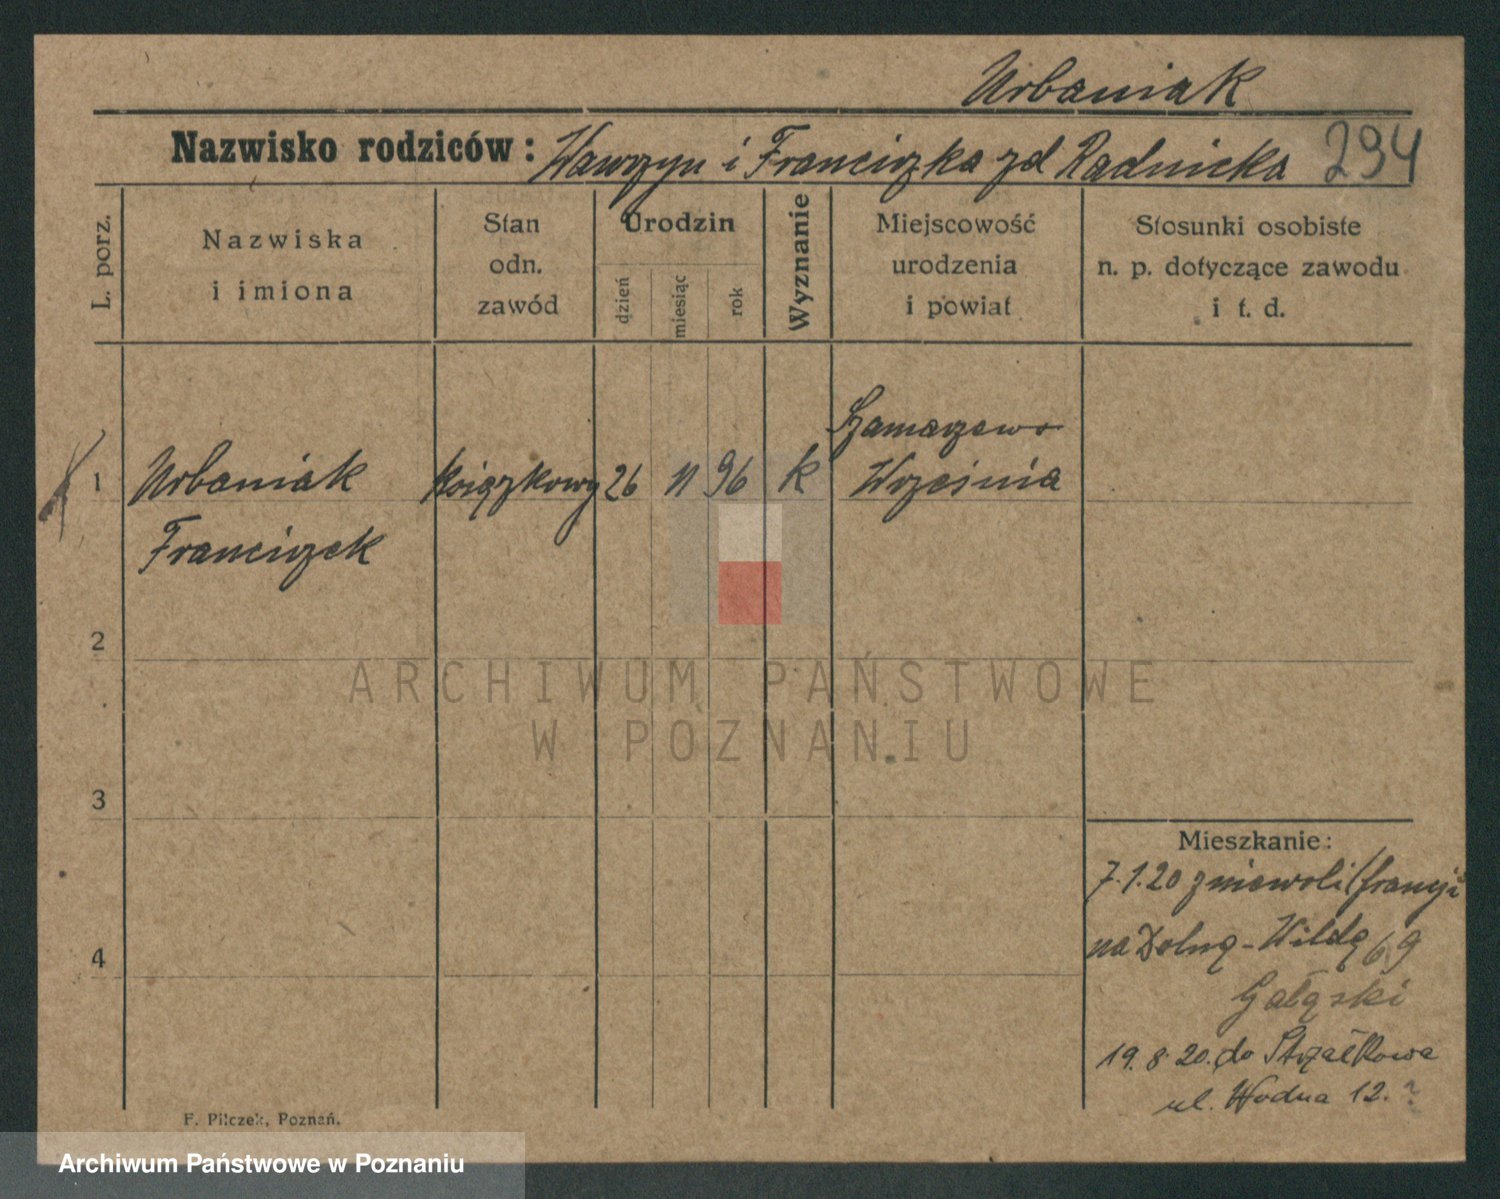 Urbaniak
Nazwisko rodziców: Wawrzyn i Franciszka zd Radnicka 294
L. porz.
Nazwiska
i imiona
Stan
odn.
zawód
Urodzin
dzień
miesiąc
rok
Wyznanie
Miejscowość
urodzenia
i powiat
Stosunki osobiste
n. p. dotyczące zawodu
i t. d.
Szamarzewo
1 Urbaniak książkowy 26 11 96 k Września
Franciszek
2
ARCHIWUM PAŃSTWOWE
W POZNANIU
3
Mieszkanie:
7.1.20 z niewoli (francji
na Dolną-Wildę 69
4
Gałąski
19.8.20. do Strzałkowa
ul. Wodna 12. ?
F. Pilczek, Poznań.
Archiwum Państwowe w Poznaniu